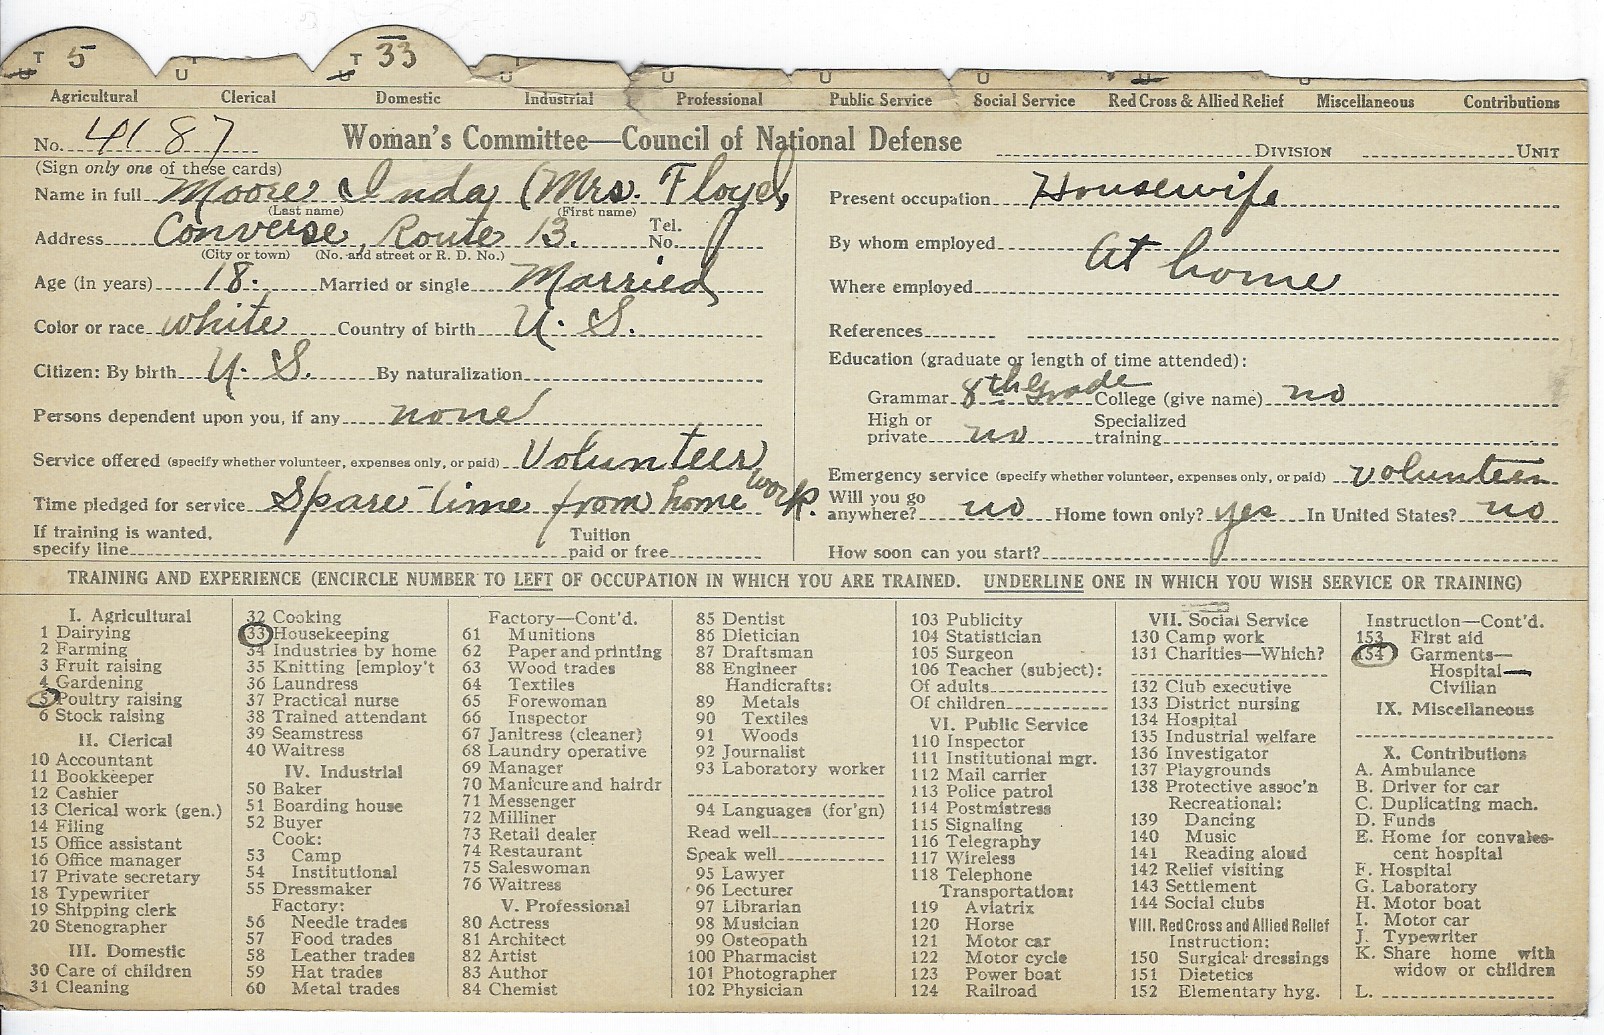 T 5 T 33
U U U U U U U U U
Agricultural Clerical Domestic Industrial Professional Public Service Social Service Red Cross & Allied Relief Miscellaneous Contributions
No. 4187 Woman's Committee—Council of National Defense DIVISION UNIT
(Sign only one of these cards)
Name in full Moore Inda (Mrs. Floyd)
(Last name) (First name)
Address Converse, Route 13. Tel. No.
(City or town) (No. and street or R. D. No.)
Age (in years) 18. Married or single Married
Color or race white Country of birth U. S.
Citizen: By birth U. S. By naturalization
Persons dependent upon you, if any none
Service offered (specify whether volunteer, expenses only, or paid) Volunteer
Time pledged for service Spare time from home work.
If training is wanted, specify line Tuition paid or free
Present occupation Housewife
By whom employed At home
Where employed
References
Education (graduate or length of time attended):
Grammar 8th Grade College (give name) no
High or private no Specialized training
Emergency service (specify whether volunteer, expenses only, or paid) volunteer
Will you go anywhere? no Home town only? yes In United States? no
How soon can you start?
TRAINING AND EXPERIENCE (ENCIRCLE NUMBER TO LEFT OF OCCUPATION IN WHICH YOU ARE TRAINED. UNDERLINE ONE IN WHICH YOU WISH SERVICE OR TRAINING)
I. Agricultural
1 Dairying
2 Farming
3 Fruit raising
4 Gardening
5 Poultry raising
6 Stock raising
II. Clerical
10 Accountant
11 Bookkeeper
12 Cashier
13 Clerical work (gen.)
14 Filing
15 Office assistant
16 Office manager
17 Private secretary
18 Typewriter
19 Shipping clerk
20 Stenographer
III. Domestic
30 Care of children
31 Cleaning
32 Cooking
33 Housekeeping
34 Industries by home
35 Knitting [employ't
36 Laundress
37 Practical nurse
38 Trained attendant
39 Seamstress
40 Waitress
IV. Industrial
50 Baker
51 Boarding house
52 Buyer
Cook:
53 Camp
54 Institutional
55 Dressmaker
Factory:
56 Needle trades
57 Food trades
58 Leather trades
59 Hat trades
60 Metal trades
Factory—Cont'd.
61 Munitions
62 Paper and printing
63 Wood trades
64 Textiles
65 Forewoman
66 Inspector
67 Janitress (cleaner)
68 Laundry operative
69 Manager
70 Manicure and hairdr
71 Messenger
72 Milliner
73 Retail dealer
74 Restaurant
75 Saleswoman
76 Waitress
V. Professional
80 Actress
81 Architect
82 Artist
83 Author
84 Chemist
85 Dentist
86 Dietician
87 Draftsman
88 Engineer
Handicrafts:
89 Metals
90 Textiles
91 Woods
92 Journalist
93 Laboratory worker
94 Languages (for'gn)
Read well
Speak well
95 Lawyer
96 Lecturer
97 Librarian
98 Musician
99 Osteopath
100 Pharmacist
101 Photographer
102 Physician
103 Publicity
104 Statistician
105 Surgeon
106 Teacher (subject):
Of adults
Of children
VI. Public Service
110 Inspector
111 Institutional mgr.
112 Mail carrier
113 Police patrol
114 Postmistress
115 Signaling
116 Telegraphy
117 Wireless
118 Telephone
Transportation:
119 Aviatrix
120 Horse
121 Motor car
122 Motor cycle
123 Power boat
124 Railroad
VII. Social Service
130 Camp work
131 Charities—Which?
132 Club executive
133 District nursing
134 Hospital
135 Industrial welfare
136 Investigator
137 Playgrounds
138 Protective assoc'n
Recreational:
139 Dancing
140 Music
141 Reading aloud
142 Relief visiting
143 Settlement
144 Social clubs
VIII. Red Cross and Allied Relief
Instruction:
150 Surgical dressings
151 Dietetics
152 Elementary hyg.
Instruction—Cont'd.
153 First aid
154 Garments—
Hospital—
Civilian
IX. Miscellaneous
X. Contributions
A. Ambulance
B. Driver for car
C. Duplicating mach.
D. Funds
E. Home for convales-
cent hospital
F. Hospital
G. Laboratory
H. Motor boat
I. Motor car
J. Typewriter
K. Share home with
widow or children
L.